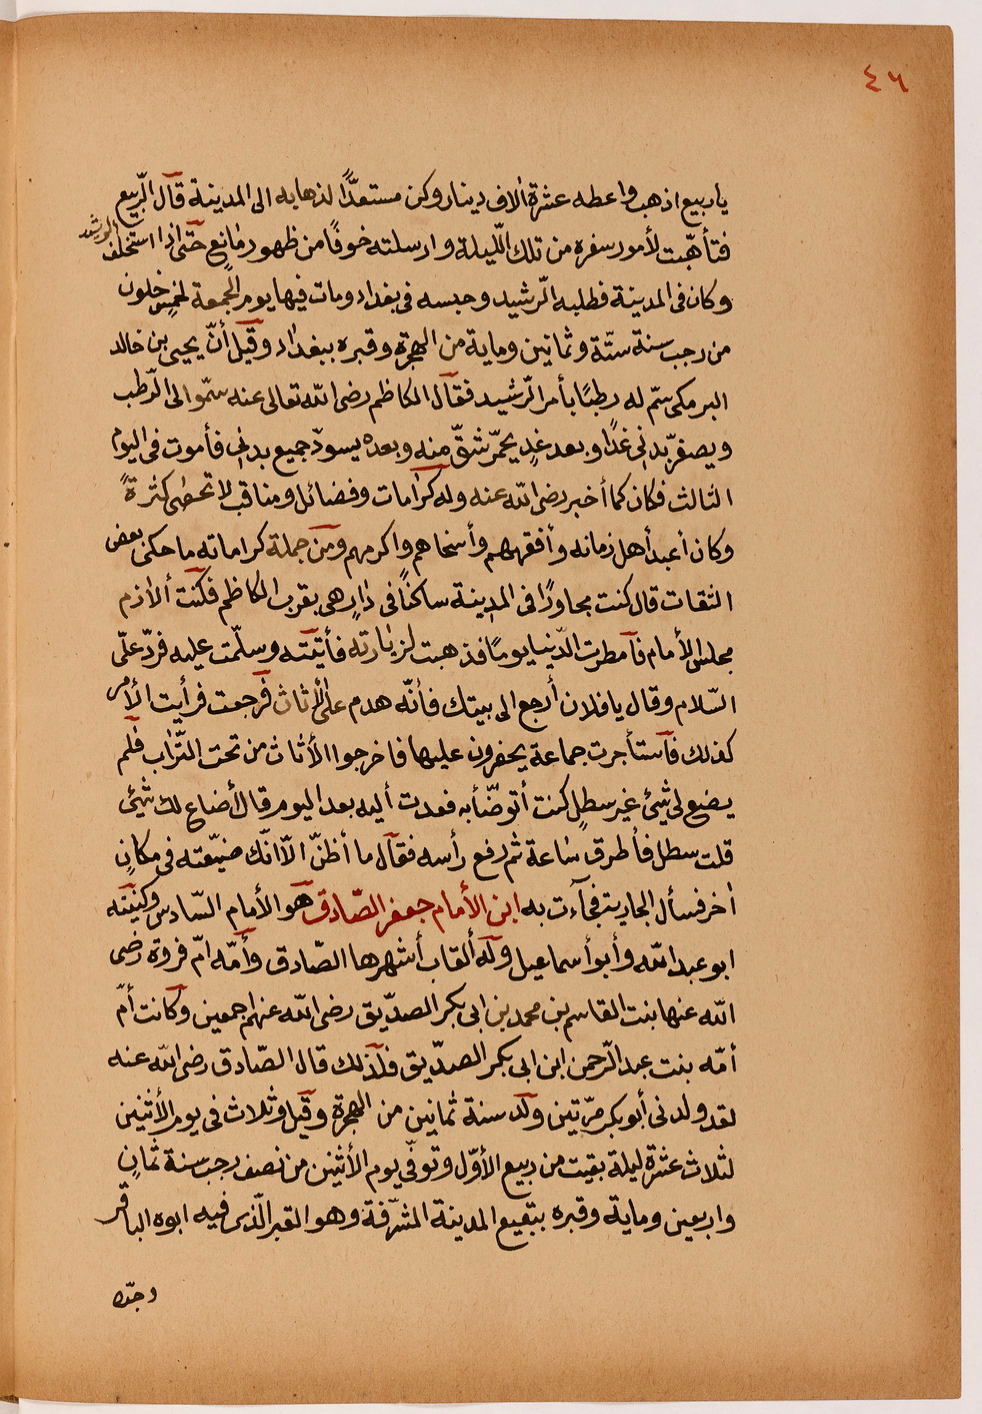 ٤٦
ياربيع اذهب واعطه عشرة ألاف دينار وكن مستعدًّا لذهابه الى المدينة قال الرّبيع
فتأهّبت لأمور سفره من تلك اللّيلة وارسلته خوفًا من ظهور مانع حتّى اذا استخلف الرشيد
وكان فى المدينة فطلبه الرّشيد وحبسه فى بغداد ومات فيها يوم الجمعة لخمس خلون
من رجب سنة ستّة وثمانين وماية من الهجرة وقبره ببغداد وقيل أنّ يحيى بن خالد
البرمكى سمّ له رطبًا بأمر الرّشيد فقال الكاظم رضى اللّه تعالى عنه سمّوا الى الرّطب
ويصفرّ بدنى غدًا وبعد غدٍ يحمرّ شقّ منه وبعده يسودّ جميع بدنى فأموت فى اليوم
الثالث فكان كما أخبر رضى اللّه عنه وله كرامات وفضائل ومناقب لا تحصٰى كثرةً
وكان أعبد أهل زمانه وأفقههم وأسخاهم واكرمهم ومن جملة كراماته ما حكى بعض
الثقات قال كنت مجاورًا فى المدينة ساكنًا فى دارٍ هى بقرب الكاظم فكنت ألازم
مجلس الأمام فأمطرت الدّنيا يومًا فذهبت لزيارته فأتيته وسلّمت عليه فردّ علّى
السّلام وقال يافلان أرجع الى بيتك فأنّه هدم على الأثاث فرجعت فرأيت الأمر
كذلك فاستأجرت جماعة يحفرون عليها فاخرجوا الأثاث من تحت التّراب فلم
يضع لى شيئ غير سطلٍ كنت أتوضّأ به فعدت أليه بعد اليوم قال أضاع لك شيئ
قلت سطل فأطرق ساعة ثم رفع رأسه فقال ما أظنّ الاّ انّك ضيّعته فى مكانٍ
أخر فسأل الجارية فجآءت به ابن الأمام جعفر الصّادق هو الأمام السّادس وكنيته
ابو عبد اللّه وأبو أسماعيل وله ألقاب أشهرها الصّادق وأمّه امّ فروة رضى
اللّه عنها بنت القاسم بن محمد بن ابى بكر الصدّيق رضى اللّه عنهم اجمعين وكانت أمّ
أمّه بنت عبد الرّحمن ابن ابى بكر الصدّيق فلذلك قال الصّادق رضى اللّه عنه
لقد ولدنى أبو بكر مرّتين ولد سنة ثمانين من الهجرة وقيل وثلاث فى يوم الأثنين
لثلاث عشرة ليلة بقيت من ربيع الأوّل وتوفّى يوم الأثنين من نصف رجب سنة ثمانٍ
واربعين وماية وقبره ببقيع المدينة المشرّفة وهو القبر الّذى فيه ابوه الباقر
وجدّه